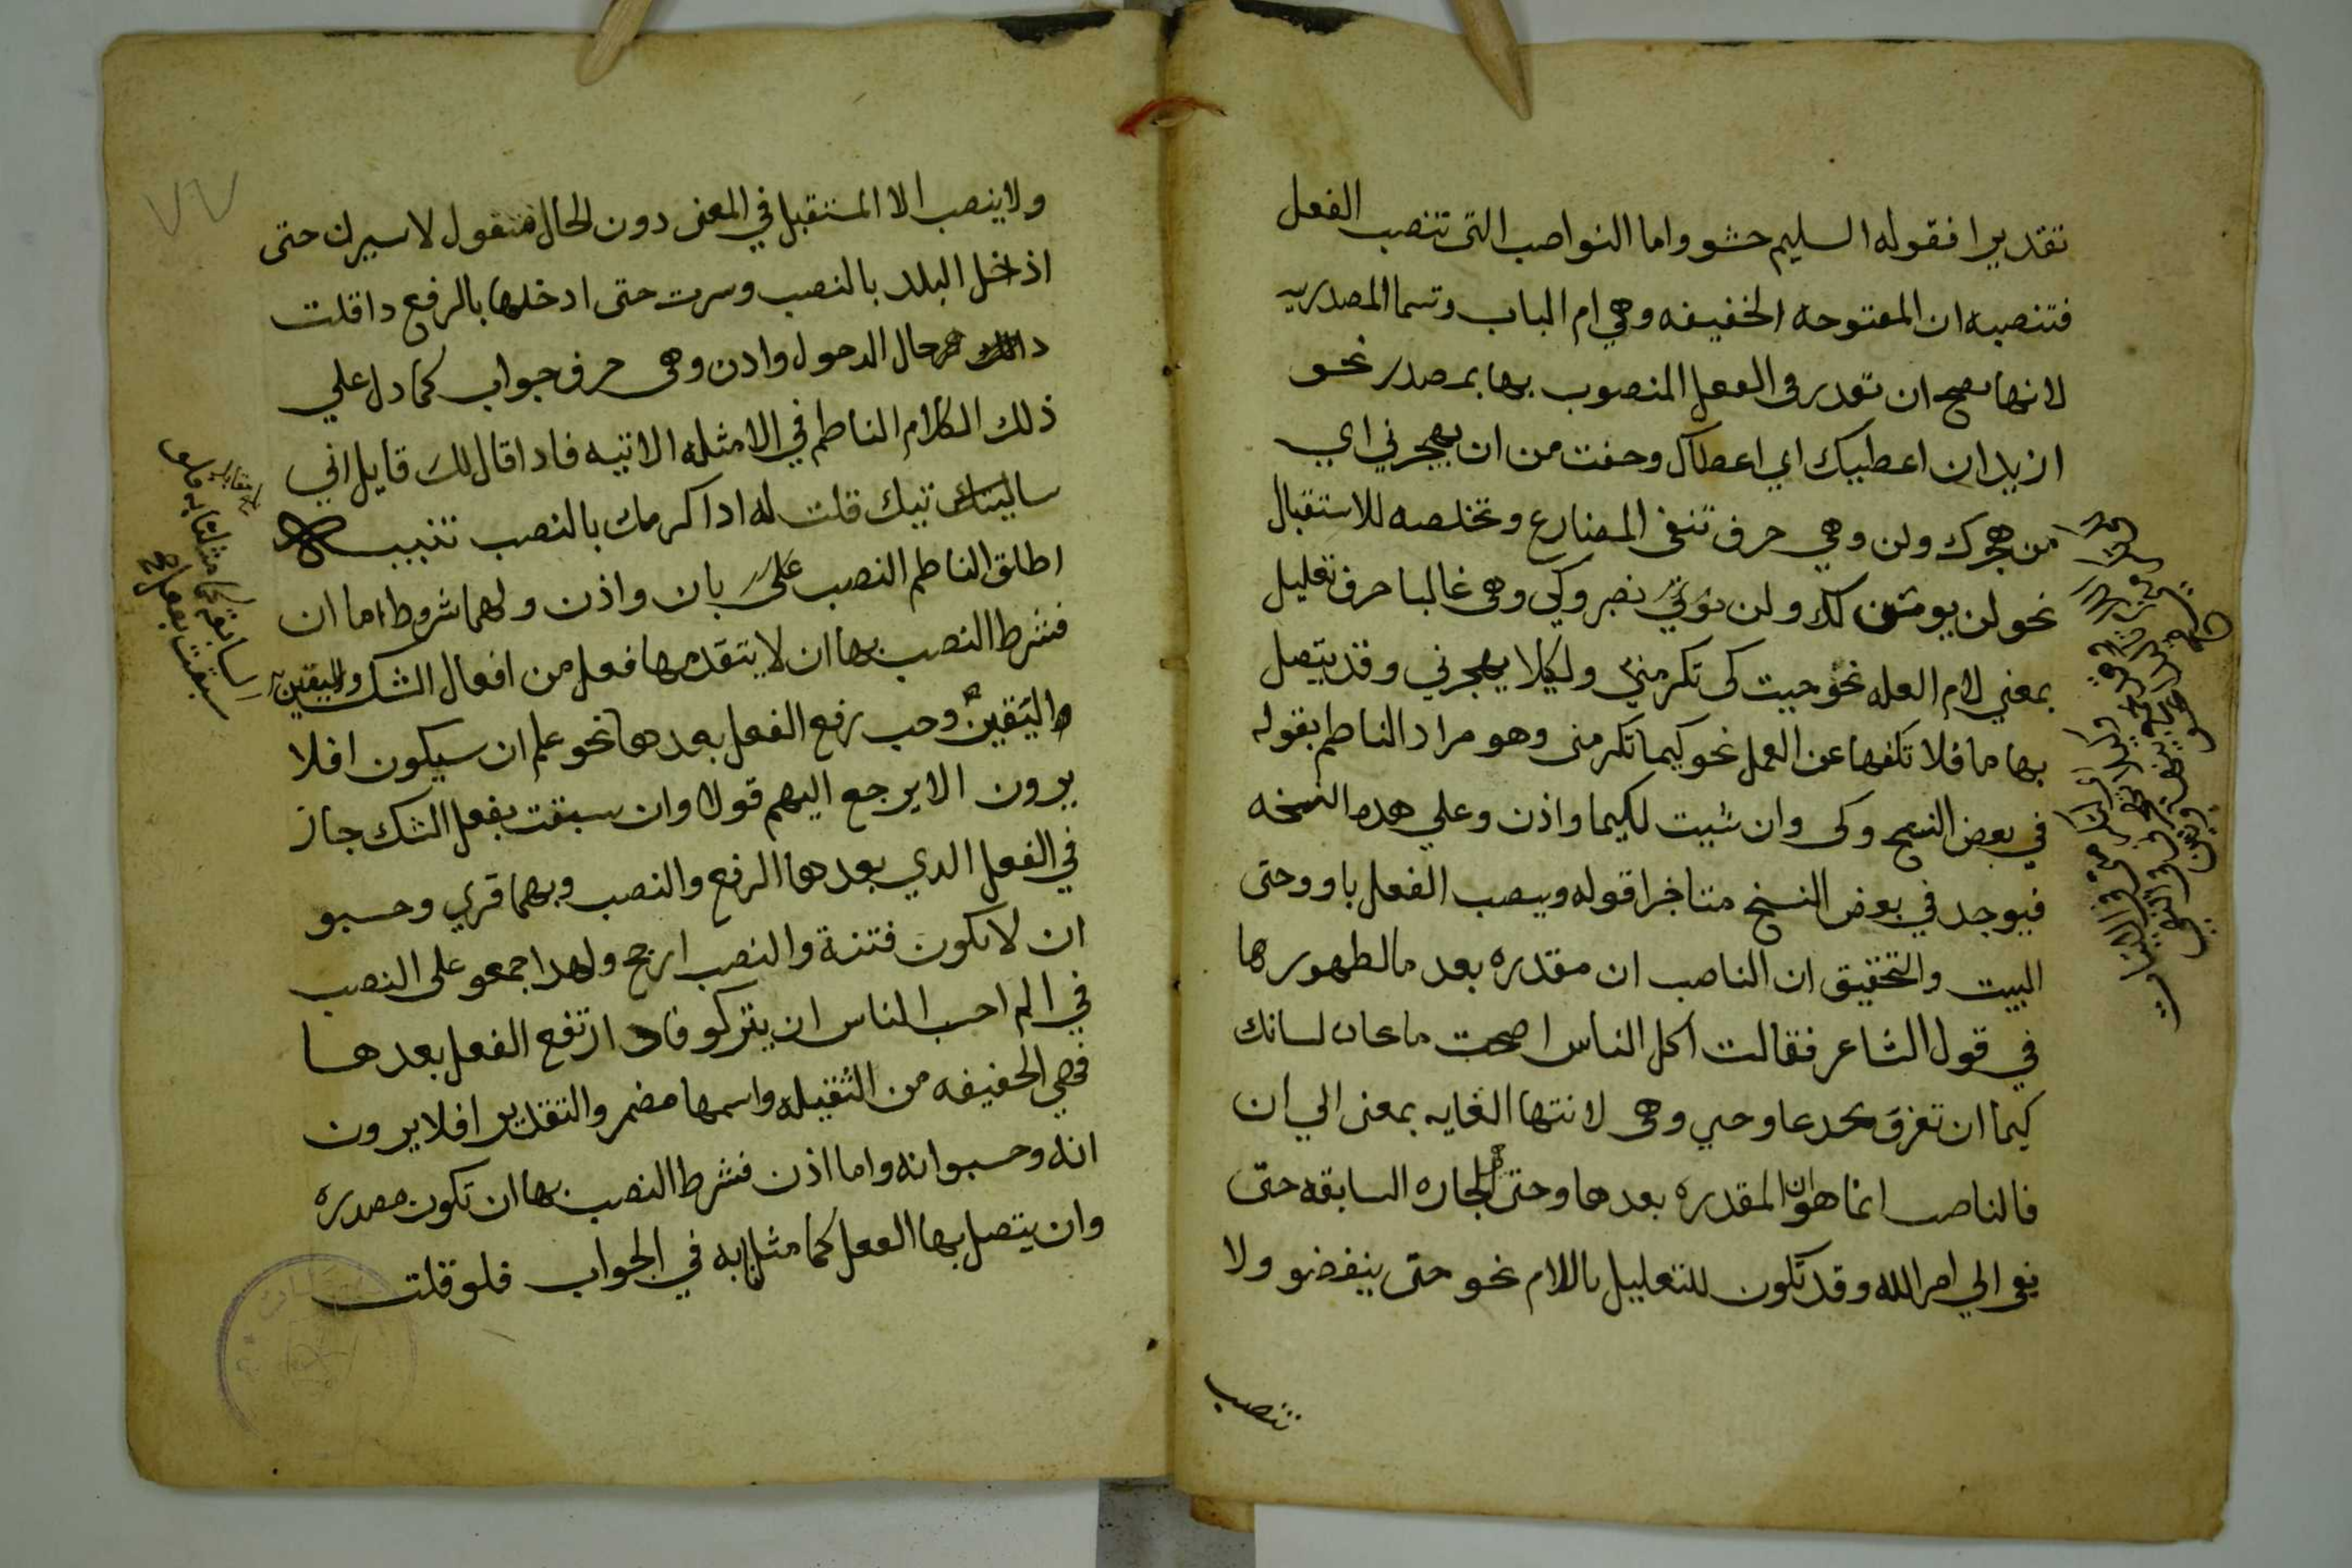 تقديرا فقوله السليم حشو واما النواصب التى تنصب الفعل
فتنصبه ان المفتوحه الخفيفه وهي ام الباب وتسما المصدريه
لانها تصح ان تقدر هي والفعل المنصوب بها بمصدر نحو
اريد ان اعطيك اي اعطاك وخفت من ان يهجرني اي
من هجرك ولن وهي حرف تنفى المضارع وتخلصه للاستقبال
نحو لن يومن لك ولن نوتي نصبر وكي وهى غالبا حرف تعليل
بمعني لام العله نحو جيت كى تكرمني ولكيلا يهجرني وقد يتصل
بها ما فلا تكفها عن العمل نحو كيما تكرمنى وهو مراد الناظم بقوله
في بعض النسح وكى وان شيت لكيما واذن وعلي هذه النسخه
فيوجد في بعض النسخ متاخرا قوله وينصب الفعل باو وحتى
البيت والتحقيق ان الناصب ان مقدره بعد ما لظهورها
في قول الشاعر فقالت اكل الناس اصبحت مانحا لسانك
كيما ان تغر وتخدعا وحتي وهى لانتها الغايه بمعنى الي ان
فالناصب انما هو ان المقدره بعدها وحتى الجاره السابقه حتى
تفى الي امر الله وقد تكون للتعليل باللام نحو حتى ينفضو ولا
تنصب
ولا ينصب الا المستقبل في المعنى دون الحال فتقول لاسيرن حتى
ادخل البلد بالنصب وسرت حتى ادخلها بالرفع اذا قلت
ذالك حال الدخول واذن وهى حرف جواب كما دل علي
ذلك الكلام الناظم في الامثله الاتيه فاذا قال لك قايل اني
ساتيك قلت له اذا اكرمك بالنصب تنبيه
اطلق الناظم النصب على بان واذن ولهما شروط اما ان
فشرط النصب بها ان لا يتقدمها فعل من افعال الشك واليقين
واليقين وجب رفع الفعل بعدها نحو علم ان سيكون افلا
يرون الا يرجع اليهم قولا وان سبقت بفعل الشك جاز
في الفعل الدي بعدها الرفع والنصب وبهما قري وحسبو
ان لا تكون فتنة والنصب ارجح ولهذا اجمعو على النصب
في الم احسب الناس ان يتركو فاذا ارتفع الفعل بعدها
فهي الخفيفه من الثقيله واسمها مضمر والتقدير افلا يرون
انه وحسبوا انه واما اذن فشرط النصب بها ان تكون مصدره
وان يتصل بها الفعل كما مثلنا به في الجواب فلو قلت